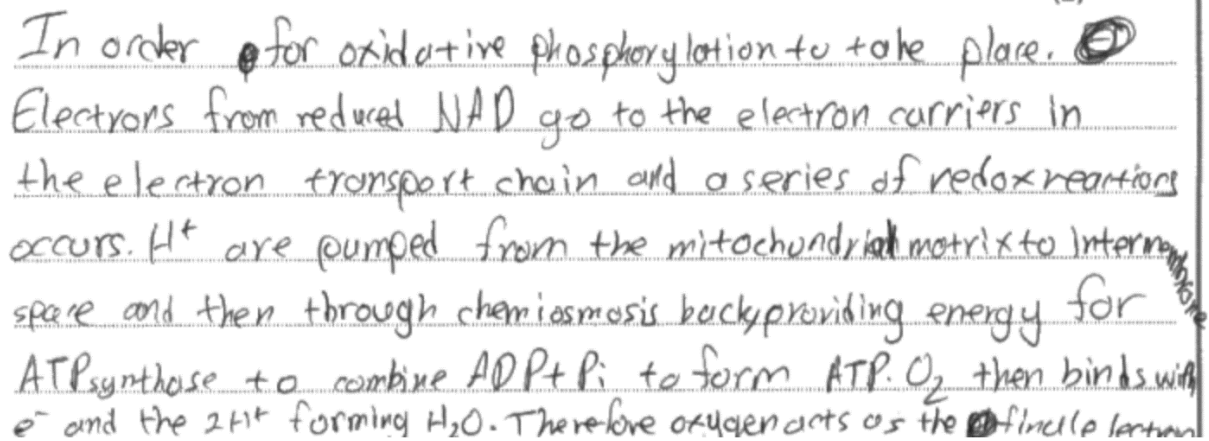 In order for oxidative phosphorylation to take place.
Electrons from reduced NAD go to the electron carriers in
the electron transport chain and a series of redox reactions
occurs. H+ are pumped from the mitochondrial matrix to intermembrane
space and then through chemiosmosis back, providing energy for
ATP synthase to combine ADP + Pi to form ATP. O2 then binds with
e- and the 2H+ forming H2O. Therefore oxygen acts as the final electron